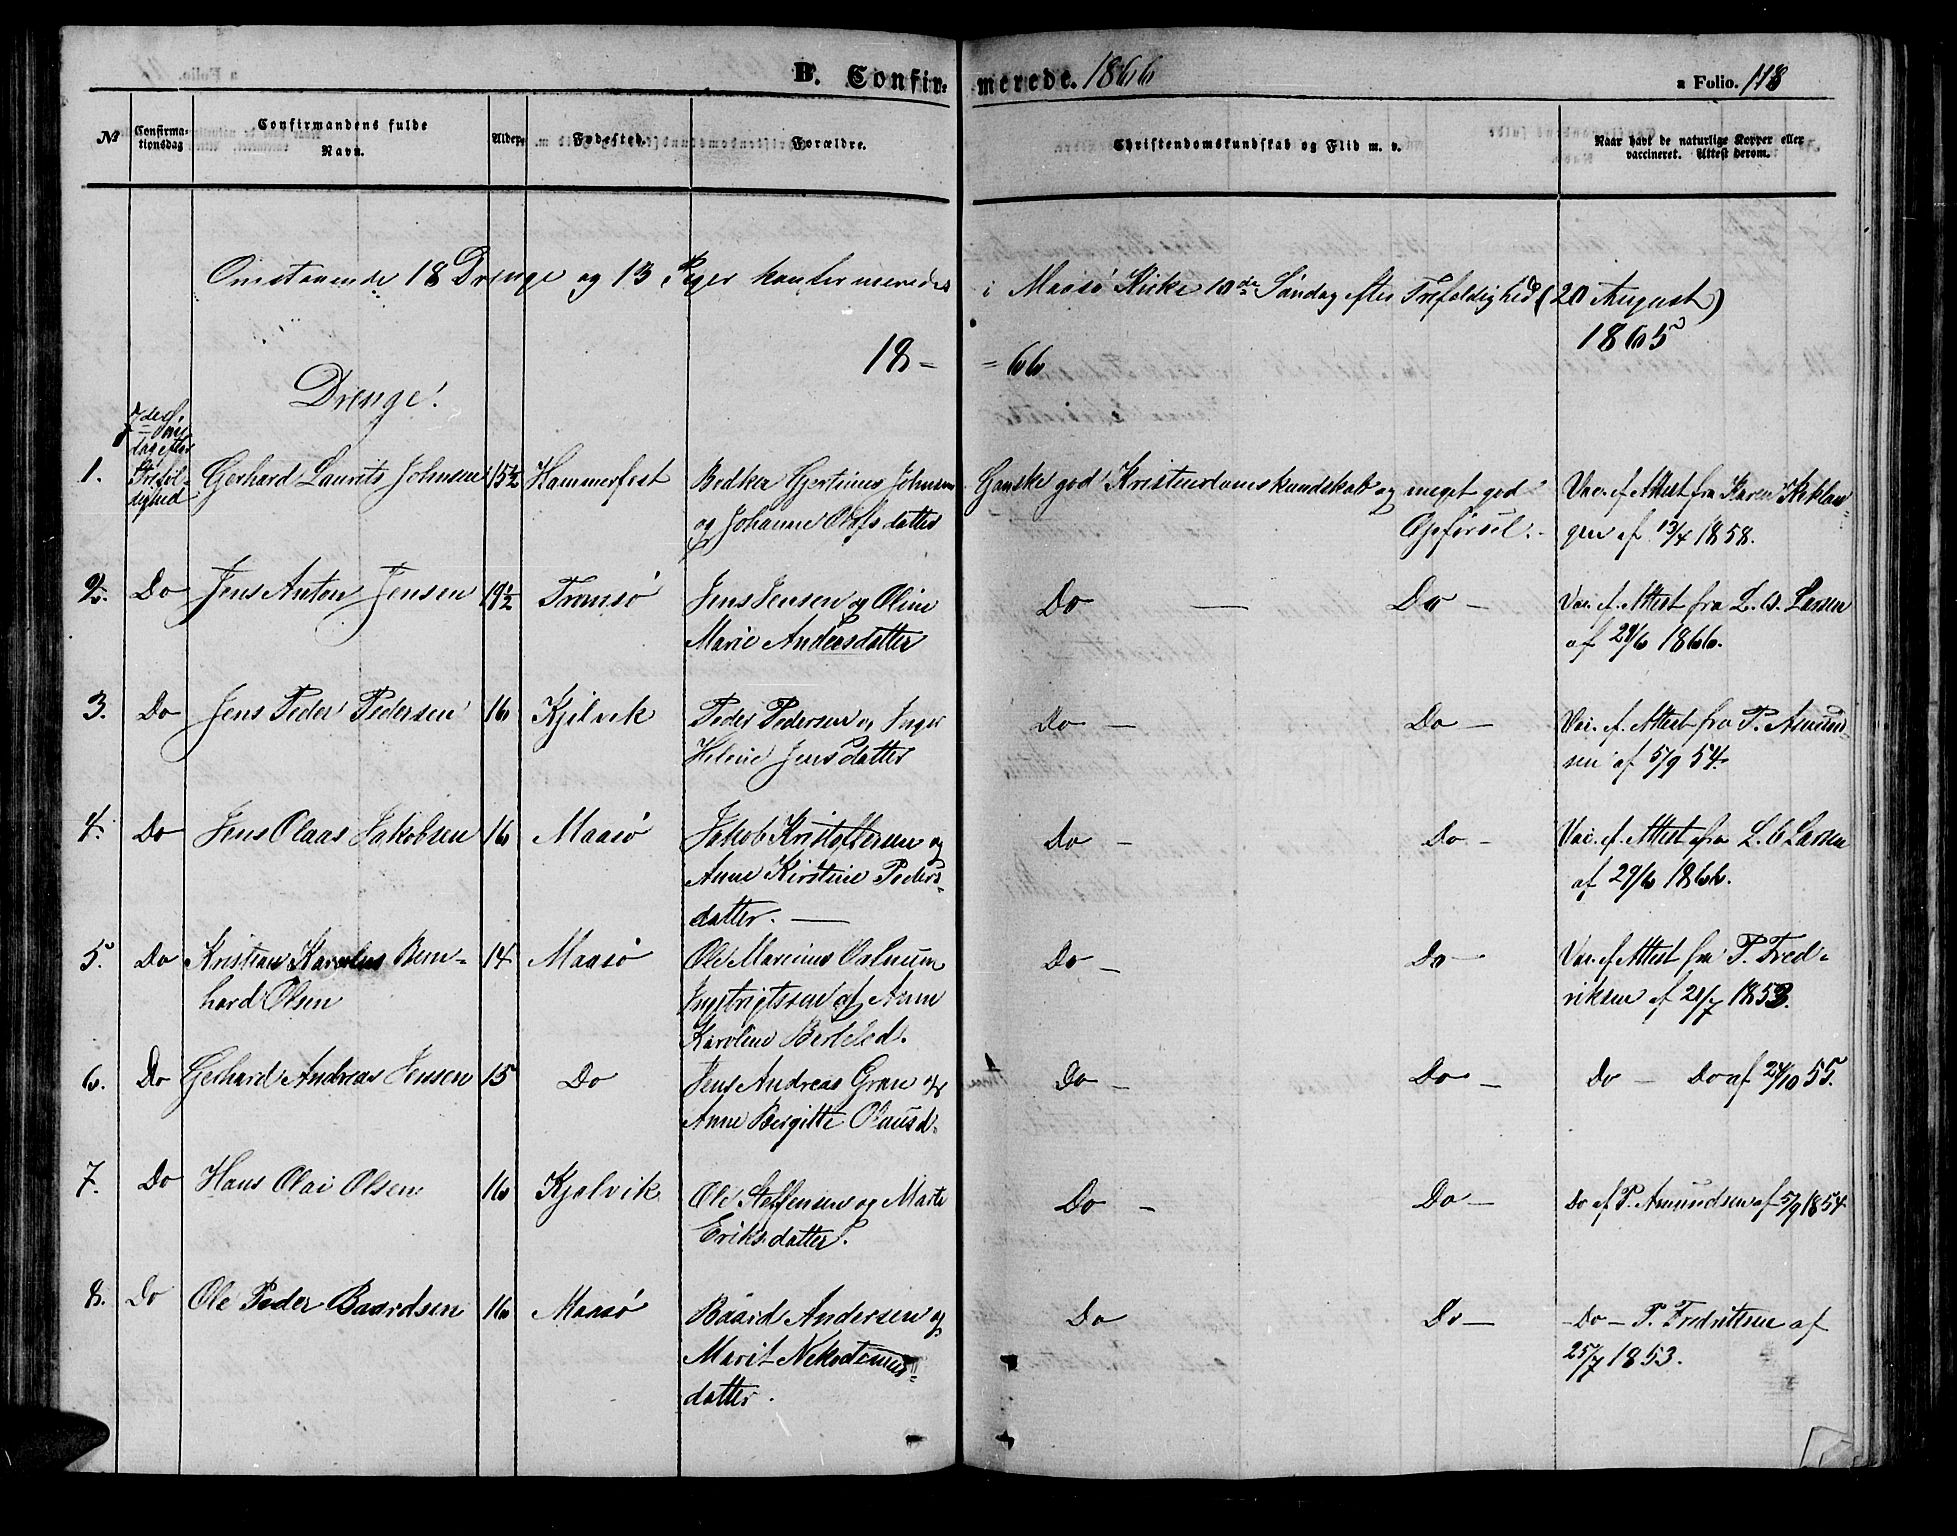 B. Confirmerede. 1866
a Folio. 118
No
Confirmationsdag
Confirmandens fulde Navn.
Alder.
Fødested.
Forældre.
Christendomskundskab og Flid m. v.
Naar havt de naturlige Kopper eller vaccineret. Attest derom.
Omstaaende 18 Drenge og 13 Piger konfirmeredes i Maasø Kirke 10de Søndag efter Trefoldighed (20 August) 1865
18- =66
Drenge.
1. 7de Søndag efter Trefoldighed Gerhard Laurits Johnsen 15½ Hammerfest Bødker Gertinus Johnsen
og Johanne Olufsdatter
Ganske god Kristendomskundskab og meget god
Opførsel.
Vac. ef. Attest fra Karen
af 13/4 1858.
2. Do Jens Anton Jensen 19½ Tromsø Jens Jensen og Oline
Marie Andersdatter
Do — Do — Vac. ef. Attest fra L. O. Larsen
af 29/6 1866.
3. Do Jens Peder Pedersen 16 Kjelvik Peder Pedersen og Inger
Helene Jensdatter
Do — Do — Vac. ef. Attest fra P. Asmund-
sen af 5/9 54.
4. Do Jens Olaas Jakobsen 16 Maasø Jakob Kristoffersen og
Anne Kirstine Peders-
datter. —
Do — Do — Vac. ef. Attest fra L. O Larsen
af 29/6 1866.
5. Do Kristian Karolus Bern-
hard Olsen 14 Maasø Ole Marinus
af Anne
Karoline
Do — Do — Vac. ef Attest fra P. Fred-
riksen af 21/7 1853.
6. Do Gerhard Andreas Jensen 15 Do Jens Andreas Gran og
Anne Bergitte Olausd.
Do — Do — Do — Do af 24/10 55.
7. Do Hans Olai Olsen 16 Kjelvik Ole Steffensen og Marte
Eriksdatter.
Do — Do — Do af P. Asmundsen af 5/9 1854
8. Do Ole Peder Baardsen 16 Maasø Baard Andersen og
Marit Nekodemus-
datter.
Do Do — Do — P. Fredriksen af
25/7 1853.